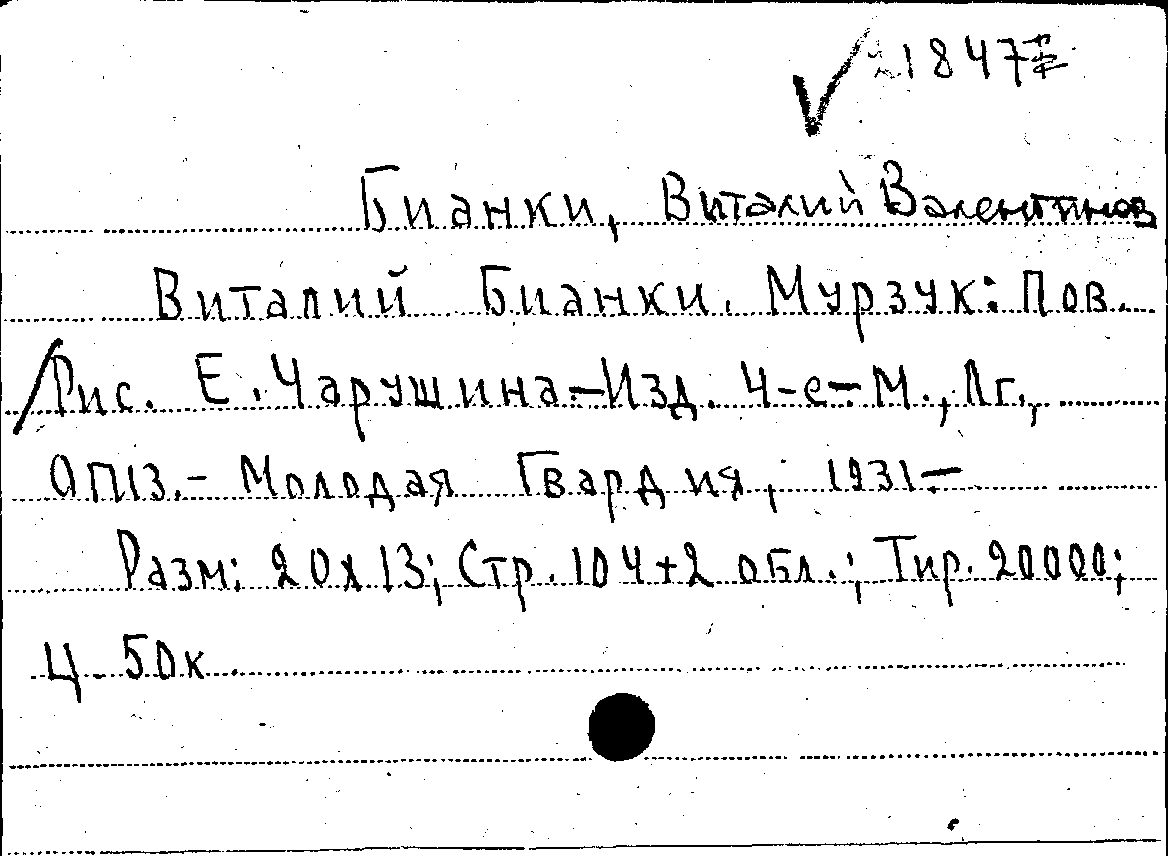 21847
Бианки, Виталий Валентинов
Виталий Бианки. Мурзук: Пов.
Рис. Е. Чарушина.-Изд. 4-е-М., Лг.,
ОГИЗ.- Молодая Гвардия, 1931-
Разм: 20х13; Стр. 104+2 обл.; Тир. 20000;
Ц. 50к.